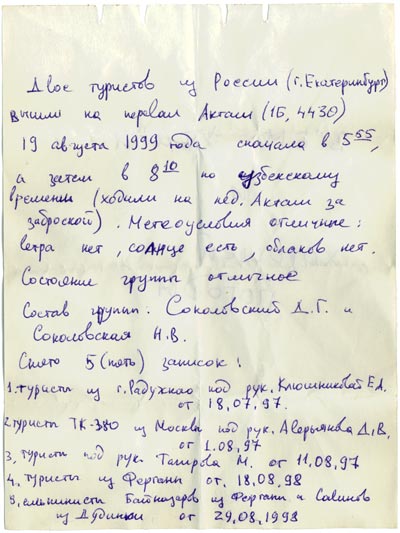 Двое туристов из России (г. Екатеринбург)
вышли на перевал Акташ (1Б, 4430)
19 августа 1999 года сначала в 5 55,
а затем в 8 10 по узбекскому
времени (ходили на лед. Акташ за
заброской). Метеоусловия отличные:
ветра нет, солнце есть, облаков нет.
Состояние группы отличное
Состав группы: Соколовский Д.Г. и
Соколовская Н.В.
Снято 5 (пять) записок:
1. туристы из г. Радужного под рук. Клюшниковой Е.А.
от 18.07.97.
2. туристы ТК-380 из Москвы под рук. Аверьянова Д.В.
от 1.08.97
3. туристы под рук. Таирова М. от 11.08.97
4. туристы из Ферганы от 18.08.98
5. альпинисты из Ферганы и Савинов
из Дудинки от 29.08.1998